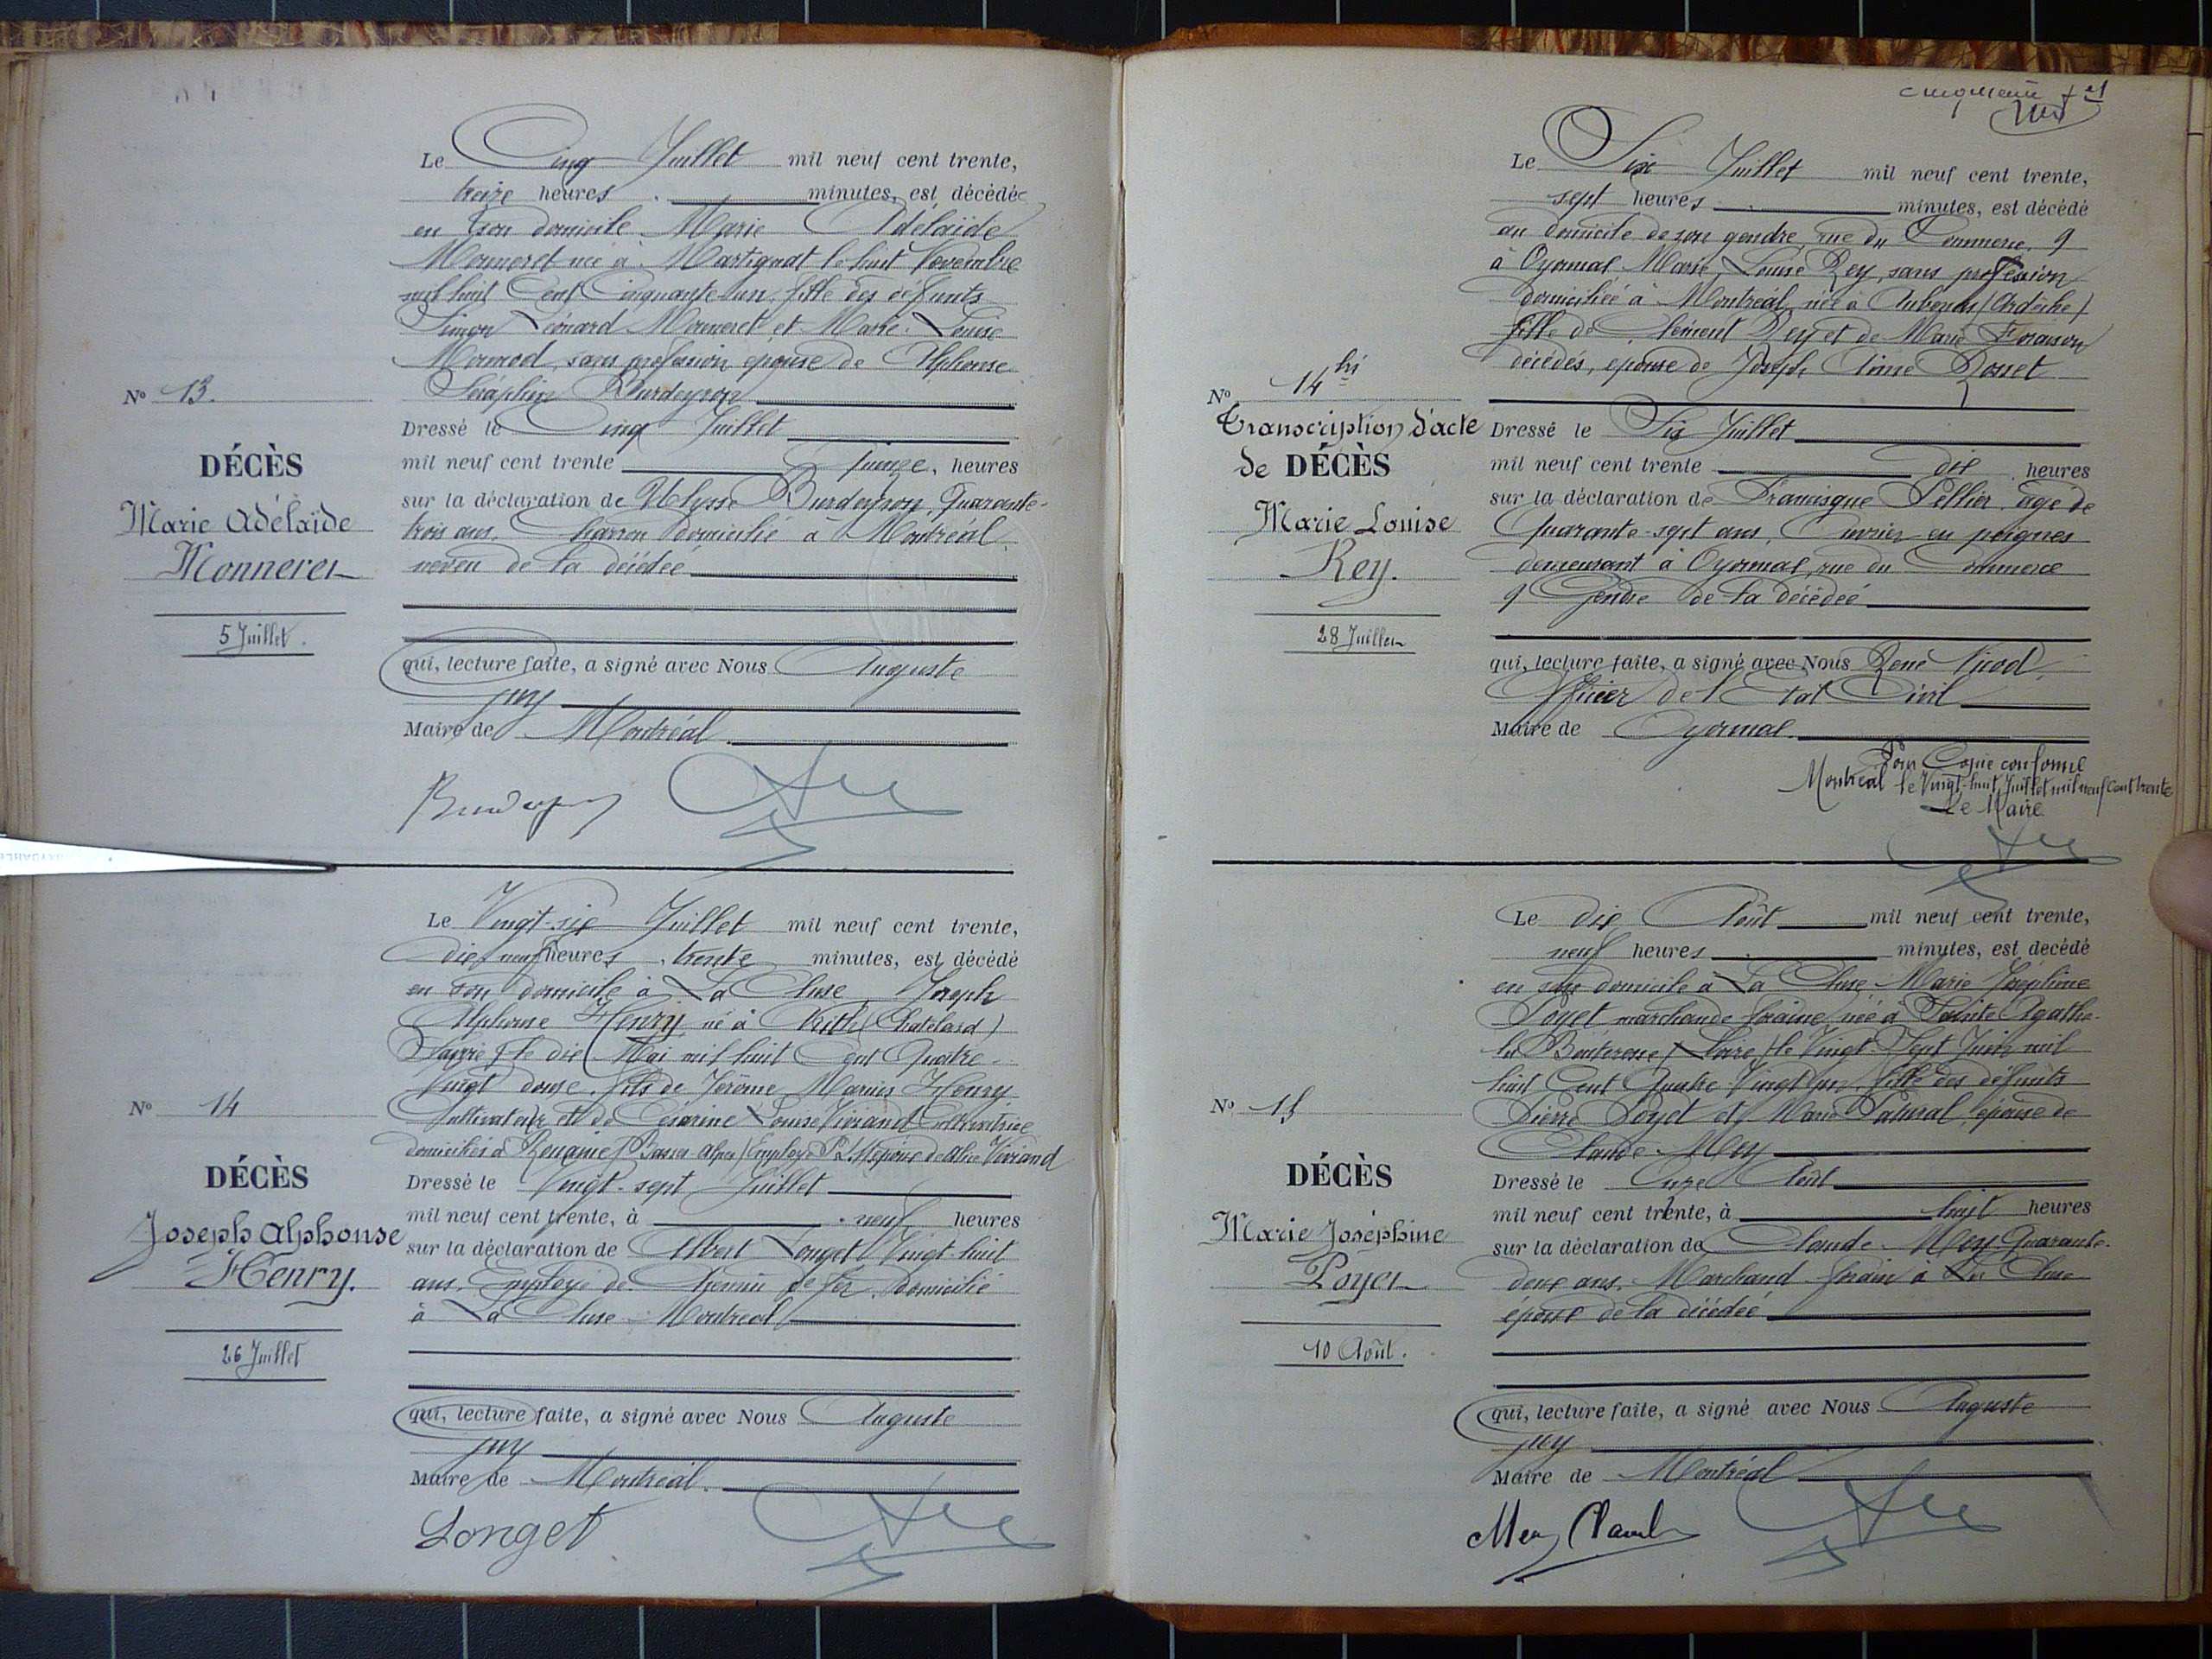 Le Cinq Juillet mil neuf cent trente,
treize heures minutes, est décédée
en son domicile Marie Adélaïde
Monneret née à Martignat le huit Novembre
mil huit Cent Cinquante un, fille des défunts
Simon Léonard Monneret et Marie Louise
sans profession épouse de Alphonse
Séraphin Burdeyron
Nº 13.
DÉCÈS
Marie Adélaïde
Monneret
5 Juillet.
Dressé le Cinq Juillet
mil neuf cent trente quinze, heures
sur la déclaration de Ulysse Burdeyron, Quarante-
trois ans, Charron domicilié à Montréal,
neveu de la décédée
qui, lecture faite, a signé avec Nous Auguste
Maire de Montréal.
Le Vingt-six Juillet mil neuf cent trente,
dix neuf heures trente minutes, est décédé
en son domicile à La Cluse Joseph
Alphonse Henry, né à (Chatelard)
le dix Mai mil huit Cent Quatre-
Vingt douze, fils de Jérôme Marius Henry
Cultivateur et de Césarine Louise Viviand Cultivatrice
domiciliés à (Basses Alpes) Employé P.L.M époux de Alice Viviand
Nº 14
DÉCÈS
Joseph Alphonse
Henry.
26 Juillet
Dressé le Vingt-sept Juillet
mil neuf cent trente, à neuf heures
sur la déclaration de Albert Longet Vingt huit
ans, Employé de Chemin de fer, domicilié
à La Cluse-Montréal
qui, lecture faite, a signé avec Nous Auguste
Maire de Montréal.
Longet
Le Six Juillet mil neuf cent trente,
sept heures minutes, est décédé
au domicile de son gendre, rue du Commerce, 9
à Oyonnax Marie Louise Rey, sans profession
domiciliée à Montréal, née à Aubenas (Ardèche)
fille de Clément Rey et de Marie
décédés, épouse de Joseph Rosset
Nº 14 bis
Transcription d'acte
de DÉCÈS
Marie Louise
Rey.
28 Juillet
Dressé le Six Juillet
mil neuf cent trente dix heures
sur la déclaration de Francisque Pellier, âgé de
Quarante-sept ans, Ouvrier en peignes
demeurant à Oyonnax, rue du Commerce
9 Gendre de la décédée
qui, lecture faite, a signé avec Nous René Nicod,
Officier de l'Etat Civil
Maire de Oyonnax.
Pour Copie conforme
Montréal le Vingt-huit Juillet mil neuf Cent trente
Le Maire
Le dix Août mil neuf cent trente,
neuf heures minutes, est décédé
en son domicile à La Cluse Marie Joséphine
Poyet marchande foraine née à Sainte Agathe-
la Bouteresse (Loire) le Vingt-Sept Juin mil
huit Cent Quatre Vingt un fille des défunts
Pierre Poyet et Marie Patural, épouse de
Claude Mey
Nº 15
DÉCÈS
Marie Joséphine
Poyet
10 Août.
Dressé le Onze Août
mil neuf cent trente, à huit heures
sur la déclaration de Claude Mey Quarante-
deux ans, Marchand forain à La Cluse
époux de la décédée
qui, lecture faite, a signé avec Nous Auguste
Maire de Montréal
Mey Claude